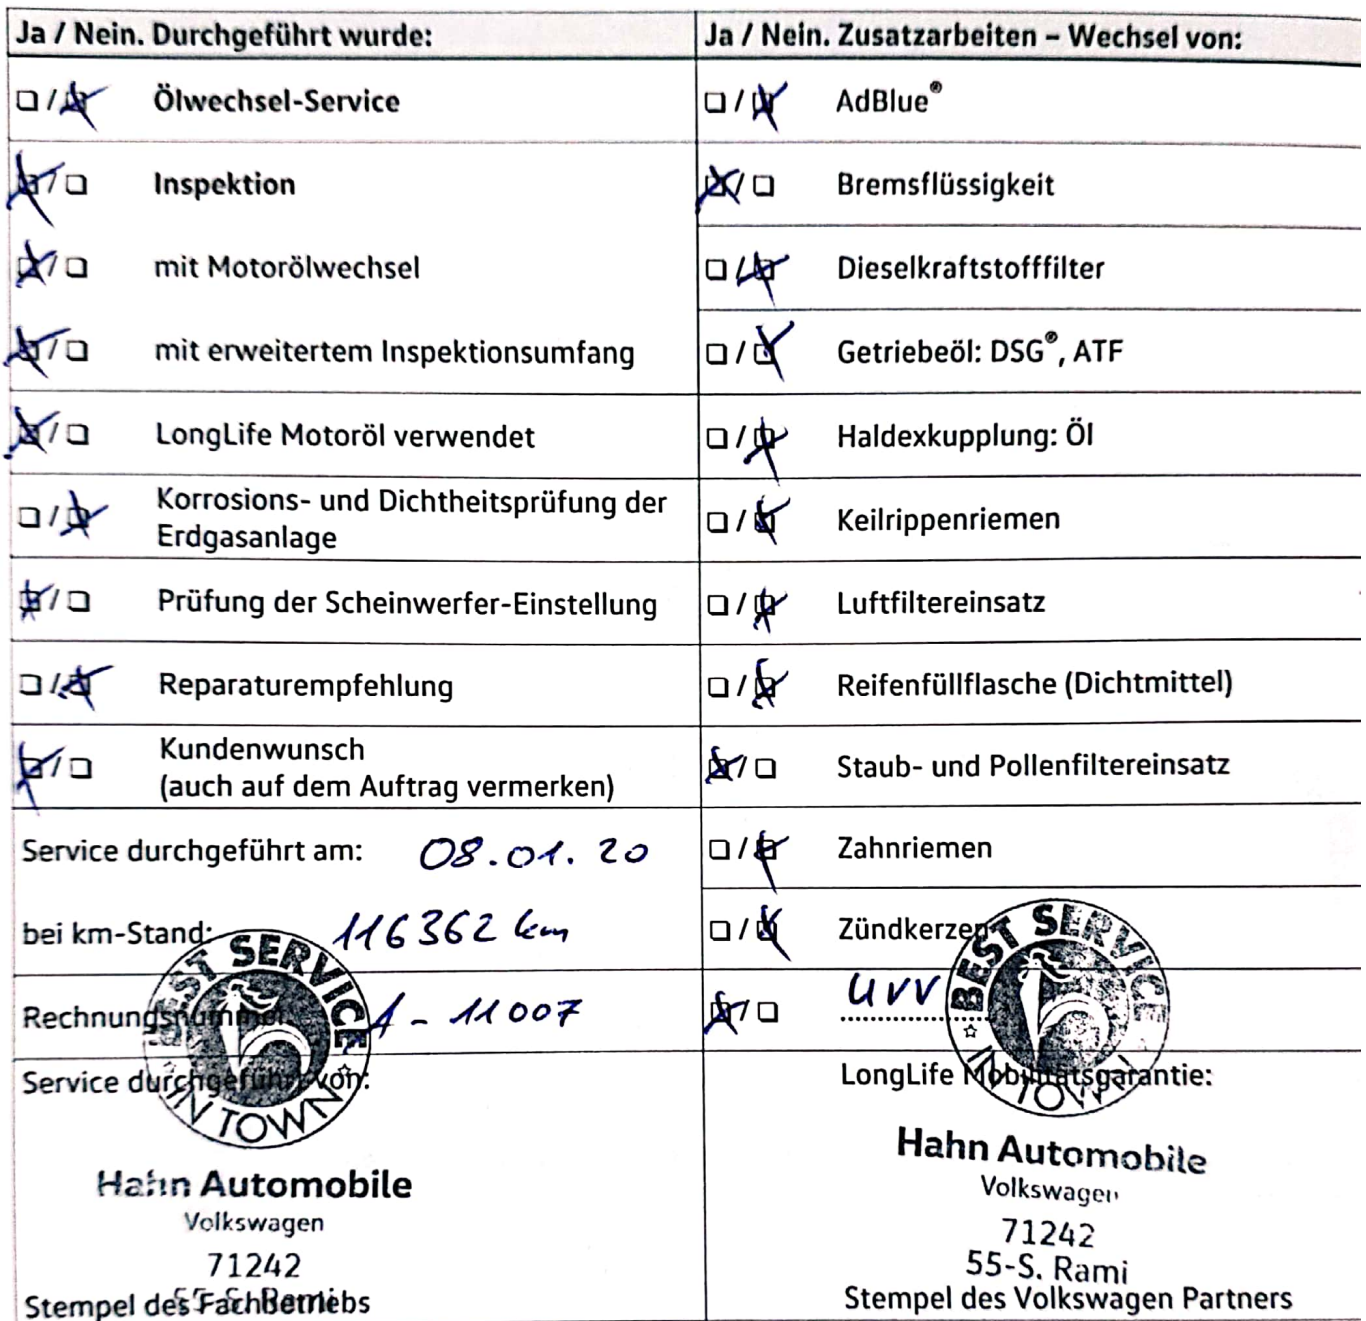 Ja / Nein. Durchgeführt wurde:
Ölwechsel-Service
Inspektion
mit Motorölwechsel
mit erweitertem Inspektionsumfang
LongLife Motoröl verwendet
Korrosions- und Dichtheitsprüfung der
Erdgasanlage
Prüfung der Scheinwerfer-Einstellung
Reparaturempfehlung
Kundenwunsch
(auch auf dem Auftrag vermerken)
Service durchgeführt am: 08.01.20
bei km-Stand: 116362 km
Rechnungsnummer: A-11007
Service durchgeführt von:
BEST SERVICE
IN TOWN
Hahn Automobile
Volkswagen
71242
55-S. Rami
Stempel des Fachbetriebs
Ja / Nein. Zusatzarbeiten – Wechsel von:
AdBlue®
Bremsflüssigkeit
Dieselkraftstofffilter
Getriebeöl: DSG®, ATF
Haldexkupplung: Öl
Keilrippenriemen
Luftfiltereinsatz
Reifenfüllflasche (Dichtmittel)
Staub- und Pollenfiltereinsatz
Zahnriemen
Zündkerzen
UVV
BEST SERVICE
IN TOWN
LongLife Mobilitätsgarantie:
Hahn Automobile
Volkswagen
71242
55-S. Rami
Stempel des Volkswagen Partners